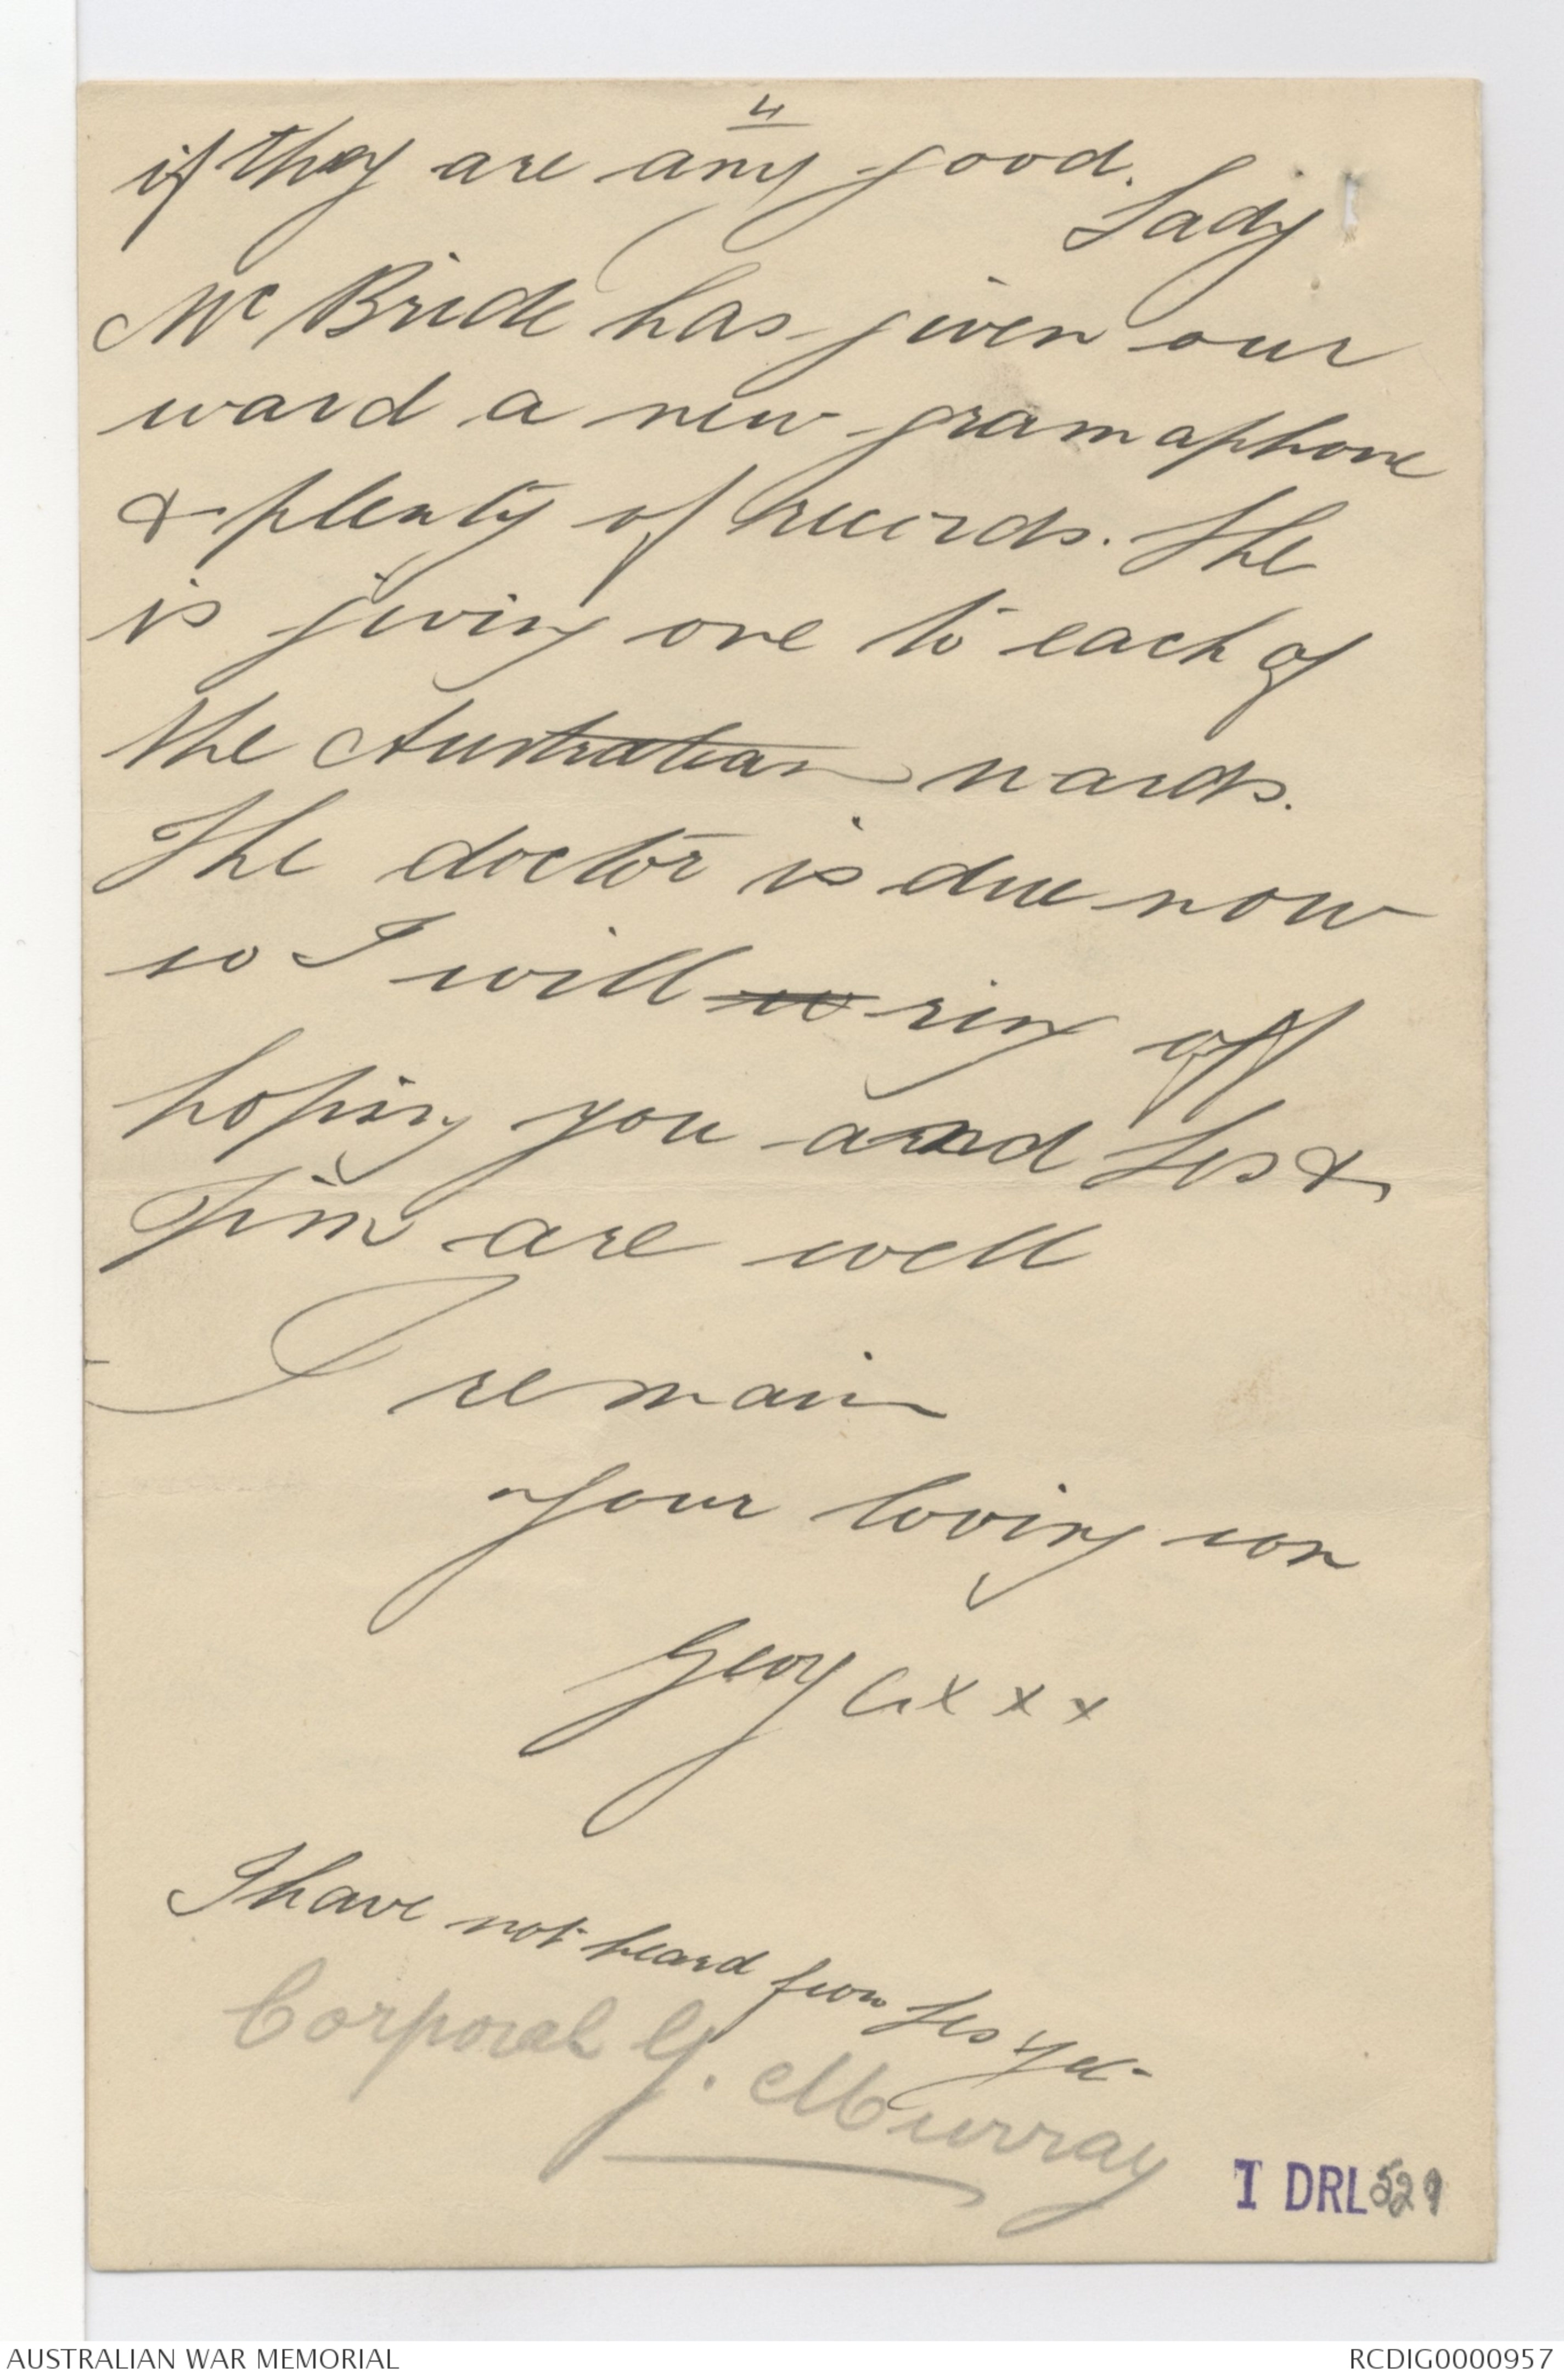 4
if they are any good. Lady
Mc Bride has given our
ward a new gramaphone
& plenty of records. She
is giving one to each of
the Australian wards.
The doctor is due now
so I will w ring off
hoping you and Les &
Jim are well
I remain
your loving son
Geog xxx
I have not heard from Les yet
Corporal G. Murray
I DRL 529
AUSTRALIAN WAR MEMORIAL
RCDIG0000957